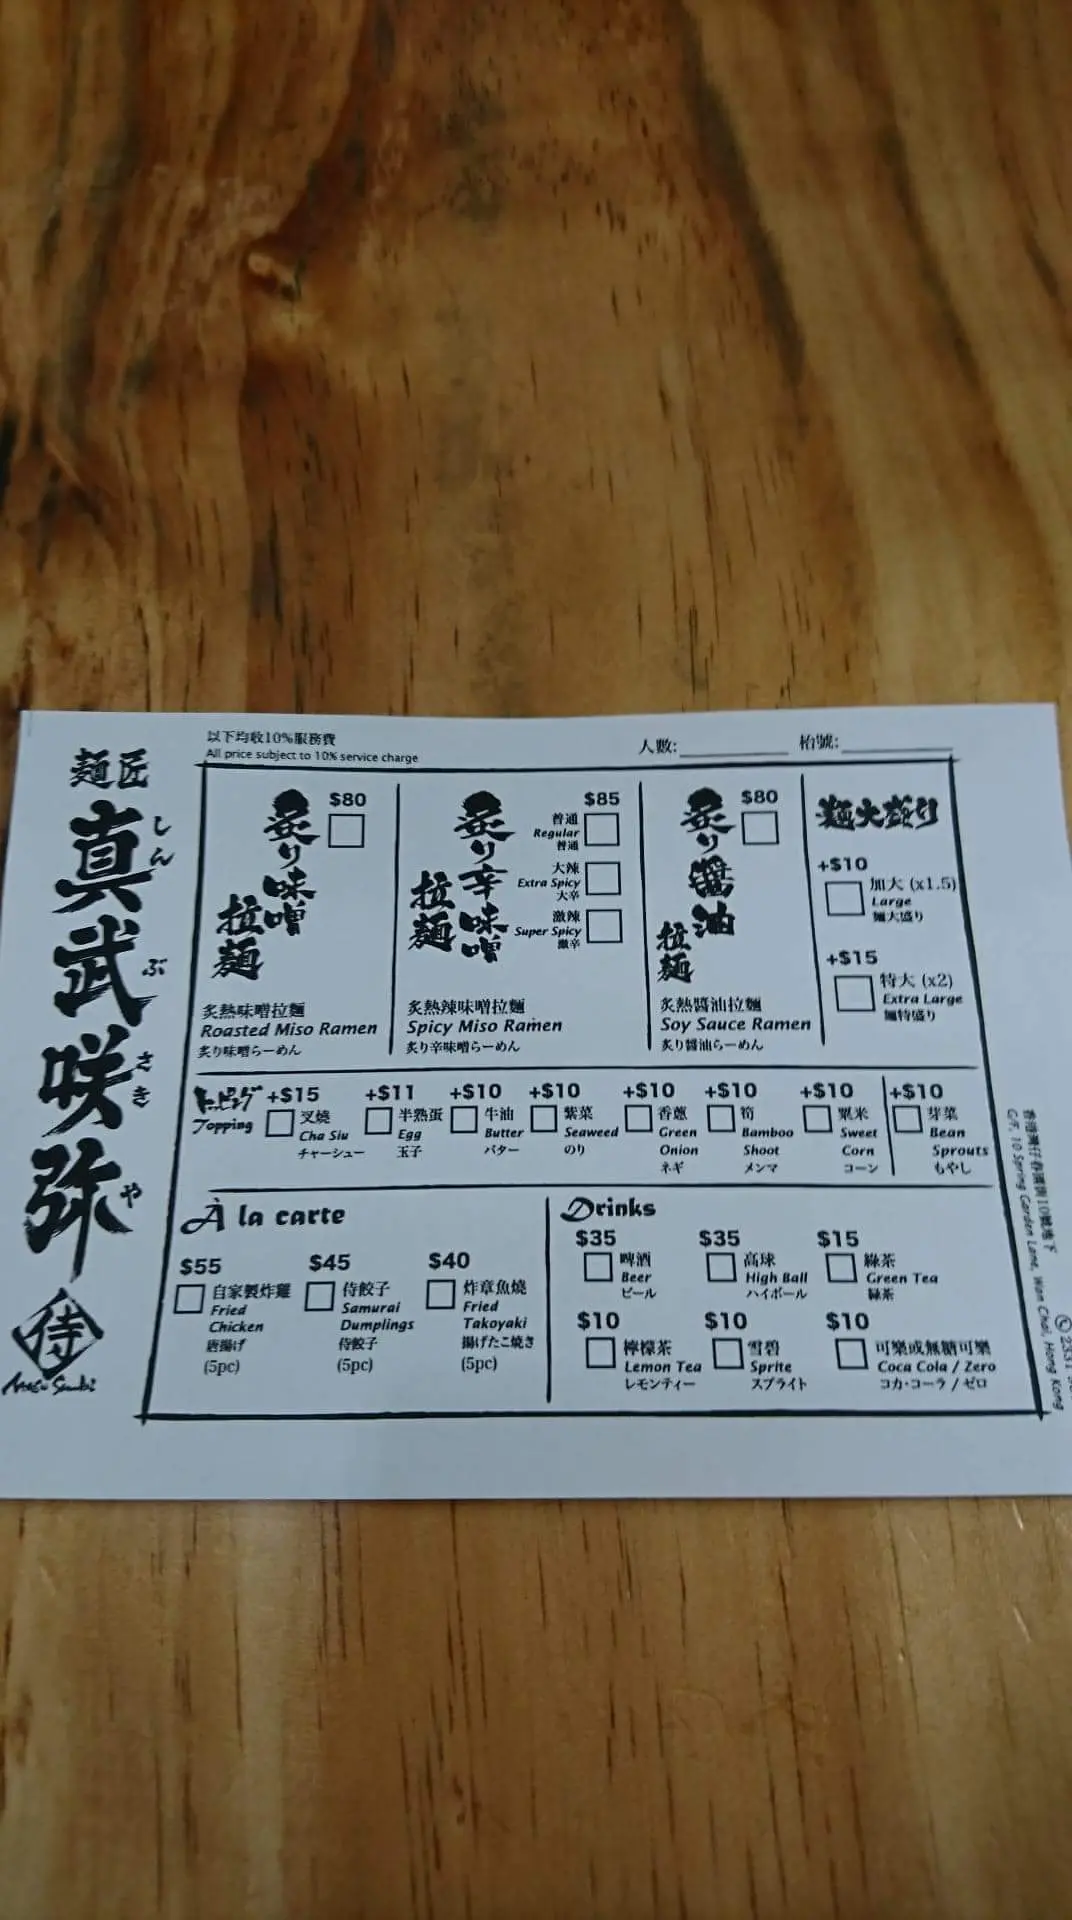 以下均收10%服務費
All price subject to 10% service charge
人數:
枱號:
麵匠
真武咲弥
しん
ぶ
さき
や
侍
炙り味噌
拉麵
$80
炙熱味噌拉麵
Roasted Miso Ramen
炙り味噌らーめん
炙り辛味噌
拉麵
$85
普通
Regular
普通
大辣
Extra Spicy
大辛
激辣
Super Spicy
激辛
炙熱辣味噌拉麵
Spicy Miso Ramen
炙り辛味噌らーめん
炙り醬油
拉麵
$80
炙熱醬油拉麵
Soy Sauce Ramen
炙り醬油らーめん
麵大盛り
+$10
加大 (x1.5)
Large
麵大盛り
+$15
特大 (x2)
Extra Large
麵特盛り
トッピング
Topping
+$15
叉燒
Cha Siu
チャーシュー
+$11
半熟蛋
Egg
玉子
+$10
牛油
Butter
バター
+$10
紫菜
Seaweed
のり
+$10
香蔥
Green
Onion
ネギ
+$10
筍
Bamboo
Shoot
メンマ
+$10
粟米
Sweet
Corn
コーン
+$10
芽菜
Bean
Sprouts
もやし
À la carte
$55
自家製炸雞
Fried
Chicken
唐揚げ
(5pc)
$45
侍餃子
Samurai
Dumplings
侍餃子
(5pc)
$40
炸章魚燒
Fried
Takoyaki
揚げたこ焼き
(5pc)
Drinks
$35
啤酒
Beer
ビール
$35
高球
High Ball
ハイボール
$15
綠茶
Green Tea
緑茶
$10
檸檬茶
Lemon Tea
レモンティー
$10
雪碧
Sprite
スプライト
$10
可樂或無糖可樂
Coca Cola / Zero
コカ・コーラ / ゼロ
香港灣仔春園街10號地下
G/F, 10 Spring Garden Lane, Wan Chai, Hong Kong